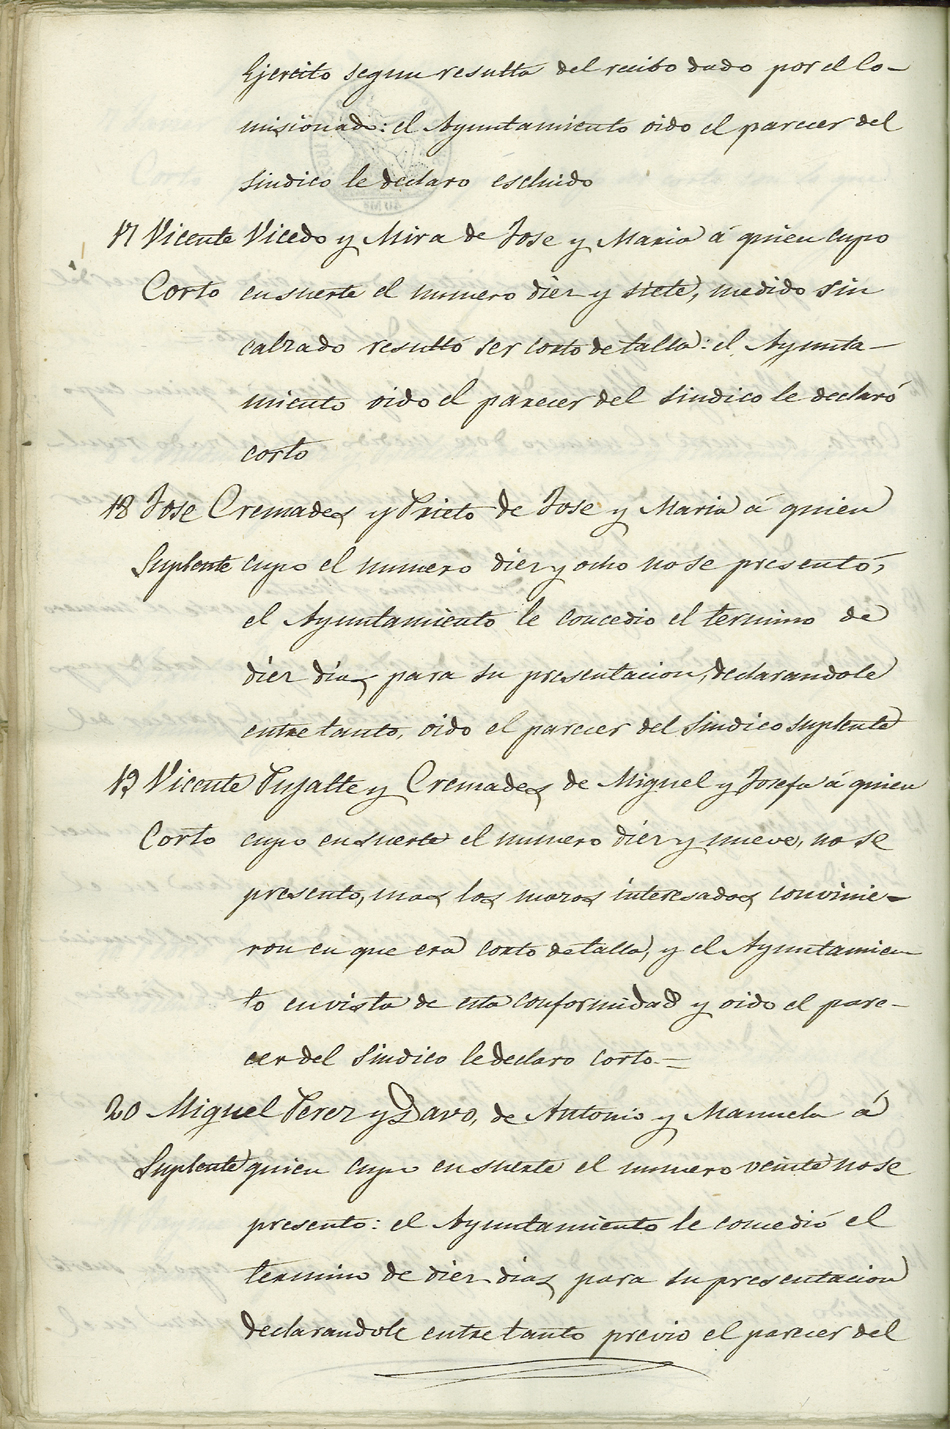 Ejercito segun resulta del recibo dado por el Co-
misionado: el Ayuntamiento oido el parecer del
Sindico le declaro escluido
17 Vicente Vicedo y Mira de Jose y Maria á quien cupo
Corto en suerte el numero diez y siete, medido sin
calzado resultó ser corto de talla: el Ayunta-
miento oido el parecer del Sindico le declaró
corto
18 Jose Cremades y Prieto de Jose y Maria á quien
Suplente cupo el numero diez y ocho no se presentó,
el Ayuntamiento le concedio el termino de
diez dias para su presentacion, declarandole
entre tanto, oido el parecer del Sindico suplente
19 Vicente Pujalte y Cremades de Miguel y Josefa á quien
Corto cupo en suerte el numero diez y nueve, no se
presento, mas los mozos interesados convinie-
ron en que era corto de talla, y el Ayuntamien
to en vista de esta conformidad y oido el pare-
cer del Sindico le declaro corto.=
20 Miguel Perez y Davo, de Antonio y Manuela á
Suplente quien cupo en suerte el numero veinte no se
presento: el Ayuntamiento le concedió el
termino de diez dias para su presentacion
declarandole entre tanto previo el parecer del